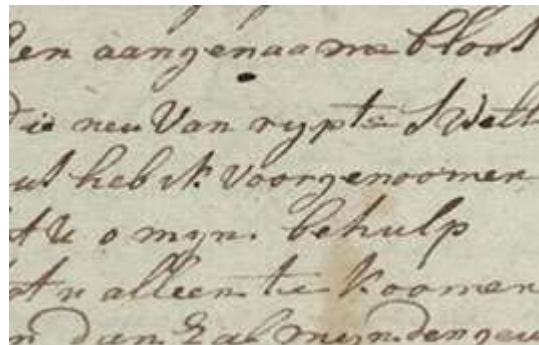 en aangenaame bloos
die neu Van rypte
ul heb ik voorgenoomen
t U o myn. behulp
alleen te koomen
dan Zal myn den geu